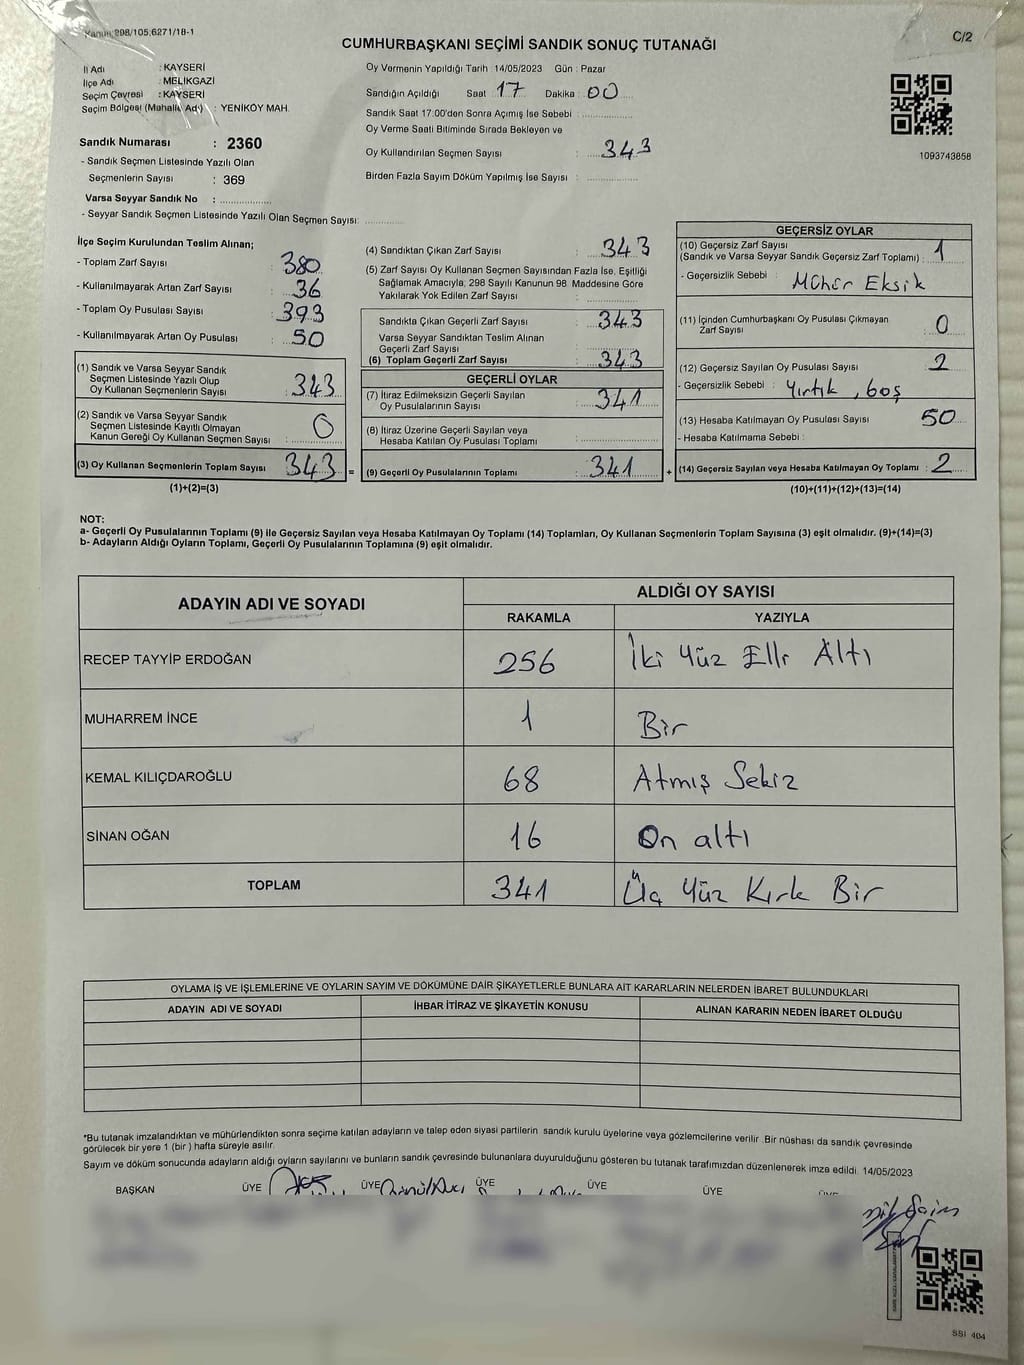 Kanun 298/105,6271/18-1
C/2
CUMHURBAŞKANI SEÇİMİ SANDIK SONUÇ TUTANAĞI
İl Adı : KAYSERİ
İlçe Adı : MELİKGAZİ
Seçim Çevresi : KAYSERİ
Seçim Bölgesi (Mahalle Adı) : YENİKÖY MAH.
Sandık Numarası : 2360
- Sandık Seçmen Listesinde Yazılı Olan
Seçmenlerin Sayısı : 369
Varsa Seyyar Sandık No :
- Seyyar Sandık Seçmen Listesinde Yazılı Olan Seçmen Sayısı:
Oy Vermenin Yapıldığı Tarih : 14/05/2023 Gün : Pazar
Sandığın Açıldığı Saat 17 Dakika : 00
Sandık Saat 17:00'den Sonra Açımış İse Sebebi :
Oy Verme Saati Bitiminde Sırada Bekleyen ve
Oy Kullandırılan Seçmen Sayısı : 343
Birden Fazla Sayım Döküm Yapılmış İse Sayısı :
1093743858
İlçe Seçim Kurulundan Teslim Alınan;
- Toplam Zarf Sayısı : 380
- Kullanılmayarak Artan Zarf Sayısı : 36
- Toplam Oy Pusulası Sayısı : 393
- Kullanılmayarak Artan Oy Pusulası : 50
(1) Sandık ve Varsa Seyyar Sandık
Seçmen Listesinde Yazılı Olup
Oy Kullanan Seçmenlerin Sayısı : 343
(2) Sandık ve Varsa Seyyar Sandık
Seçmen Listesinde Kayıtlı Olmayan
Kanun Gereği Oy Kullanan Seçmen Sayısı : 0
(3) Oy Kullanan Seçmenlerin Toplam Sayısı : 343 =
(1)+(2)=(3)
(4) Sandıktan Çıkan Zarf Sayısı : 343
(5) Zarf Sayısı Oy Kullanan Seçmen Sayısından Fazla İse, Eşitliği
Sağlamak Amacıyla, 298 Sayılı Kanunun 98 Maddesine Göre
Yakılarak Yok Edilen Zarf Sayısı :
Sandıkta Çıkan Geçerli Zarf Sayısı : 343
Varsa Seyyar Sandıktan Teslim Alınan
Geçerli Zarf Sayısı :
(6) Toplam Geçerli Zarf Sayısı : 343
GEÇERLİ OYLAR
(7) İtiraz Edilmeksizin Geçerli Sayılan
Oy Pusulalarının Sayısı : 341
(8) İtiraz Üzerine Geçerli Sayılan veya
Hesaba Katılan Oy Pusulası Toplamı :
(9) Geçerli Oy Pusulalarının Toplamı : 341 +
GEÇERSİZ OYLAR
(10) Geçersiz Zarf Sayısı
(Sandık ve Varsa Seyyar Sandık Geçersiz Zarf Toplamı) : 1
- Geçersizlik Sebebi : Mühür Eksik
(11) İçinden Cumhurbaşkanı Oy Pusulası Çıkmayan
Zarf Sayısı : 0
(12) Geçersiz Sayılan Oy Pusulası Sayısı : 2
- Geçersizlik Sebebi : Yırtık, boş
(13) Hesaba Katılmayan Oy Pusulası Sayısı : 50
- Hesaba Katılmama Sebebi :
(14) Geçersiz Sayılan veya Hesaba Katılmayan Oy Toplamı : 2
(10)+(11)+(12)+(13)=(14)
NOT:
a- Geçerli Oy Pusulalarının Toplamı (9) ile Geçersiz Sayılan veya Hesaba Katılmayan Oy Toplamı (14) Toplamları, Oy Kullanan Seçmenlerin Toplam Sayısına (3) eşit olmalıdır. (9)+(14)=(3)
b- Adayların Aldığı Oyların Toplamı, Geçerli Oy Pusulalarının Toplamına (9) eşit olmalıdır.
ADAYIN ADI VE SOYADI
ALDIĞI OY SAYISI
RAKAMLA YAZIYLA
RECEP TAYYİP ERDOĞAN 256 İki Yüz Elli Altı
MUHARREM İNCE 1 Bir
KEMAL KILIÇDAROĞLU 68 Atmış Sekiz
SİNAN OĞAN 16 On altı
TOPLAM 341 Üç Yüz Kırk Bir
OYLAMA İŞ VE İŞLEMLERİNE VE OYLARIN SAYIM VE DÖKÜMÜNE DAİR ŞİKAYETLERLE BUNLARA AİT KARARLARIN NELERDEN İBARET BULUNDUKLARI
ADAYIN ADI VE SOYADI İHBAR İTİRAZ VE ŞİKAYETİN KONUSU ALINAN KARARIN NEDEN İBARET OLDUĞU
*Bu tutanak imzalandıktan ve mühürlendikten sonra seçime katılan adayların ve talep eden siyasi partilerin sandık kurulu üyelerine veya gözlemcilerine verilir. Bir nüshası da sandık çevresinde
görülecek bir yere 1 (bir) hafta süreyle asılır.
Sayım ve döküm sonucunda adayların aldığı oyların sayılarını ve bunların sandık çevresinde bulunanlara duyurulduğunu gösteren bu tutanak tarafımızdan düzenlenerek imza edildi. 14/05/2023
BAŞKAN ÜYE ÜYE ÜYE ÜYE ÜYE
SSI 404